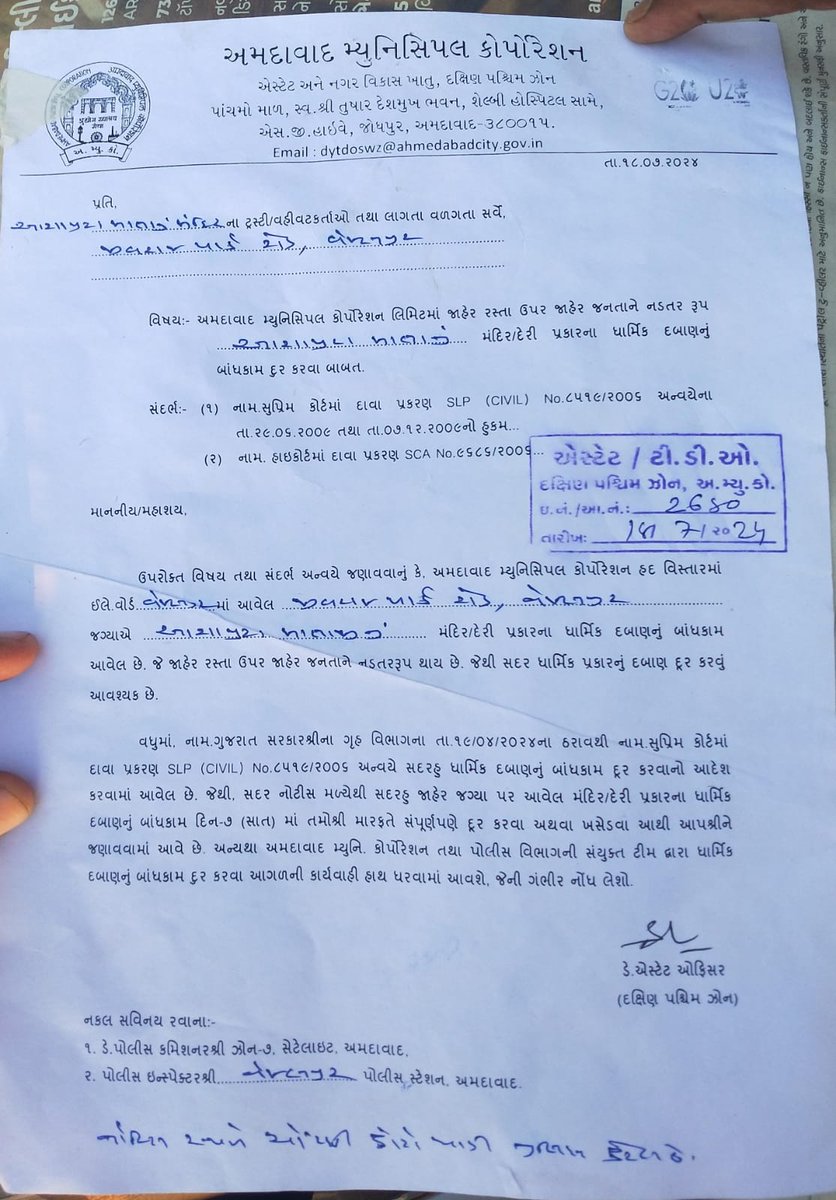 અમદાવાદ મ્યુનિસિપલ કોર્પોરેશન
એસ્ટેટ અને નગર વિકાસ ખાતુ, દક્ષિણ પશ્ચિમ ઝોન
પાંચમો માળ, સ્વ.શ્રી તુષાર દેશમુખ ભવન, શેલ્બી હોસ્પિટલ સામે,
એસ.જી.હાઈવે, જોધપુર, અમદાવાદ-૩૮૦૦૧૫.
Email : dytdoswz@ahmedabadcity.gov.in
G20 U20
અ. મ્યુ. કો.
તા.૧૮.૦૭.૨૦૨૪
પ્રતિ,
આશાપુરા માતાનું મંદિરના ટ્રસ્ટી/વહીવટકર્તાઓ તથા લાગતા વળગતા સર્વે,
જીવરાજ પાર્ક રોડ, વેજલપુર
વિષય:- અમદાવાદ મ્યુનિસિપલ કોર્પોરેશન લિમિટમાં જાહેર રસ્તા ઉપર જાહેર જનતાને નડતર રૂપ
આશાપુરા માતાનું મંદિર/દેરી પ્રકારના ધાર્મિક દબાણનું
બાંધકામ દુર કરવા બાબત.
સંદર્ભ:- (૧) નામ.સુપ્રિમ કોર્ટમાં દાવા પ્રકરણ SLP (CIVIL) No.૮૫૧૯/૨૦૦૬ અન્વયેના
તા.૨૯.૦૬.૨૦૦૯ તથા તા.૦૭.૧૨.૨૦૦૯નો હુકમ...
(૨) નામ. હાઇકોર્ટમાં દાવા પ્રકરણ SCA No.૯૬૮૬/૨૦૦૬...
એસ્ટેટ / ટી.ડી.ઓ.
દક્ષિણ પશ્ચિમ ઝોન, અ.મ્યુ.કો.
ઇ.નં./આ.નં.: 2680
તારીખ: 18/7/૨૦24
માનનીય/મહાશય,
ઉપરોક્ત વિષય તથા સંદર્ભ અન્વયે જણાવવાનું કે, અમદાવાદ મ્યુનિસિપલ કોર્પોરેશન હદ વિસ્તારમાં
ઈલે.વોર્ડ વેજલપુરમાં આવેલ જીવરાજ પાર્ક રોડ, વેજલપુર
જગ્યાએ આશાપુરા માતાજીનું મંદિર/દેરી પ્રકારના ધાર્મિક દબાણનું બાંધકામ
આવેલ છે. જે જાહેર રસ્તા ઉપર જાહેર જનતાને નડતરરૂપ થાય છે. જેથી સદર ધાર્મિક પ્રકારનું દબાણ દૂર કરવું
આવશ્યક છે.
વધુમાં, નામ.ગુજરાત સરકારશ્રીના ગૃહ વિભાગના તા.૧૯/૦૪/૨૦૨૪ના ઠરાવથી નામ.સુપ્રિમ કોર્ટમાં
દાવા પ્રકરણ SLP (CIVIL) No.૮૫૧૯/૨૦૦૬ અન્વયે સદરહુ ધાર્મિક દબાણનું બાંધકામ દૂર કરવાનો આદેશ
કરવામાં આવેલ છે. જેથી, સદર નોટીસ મળ્યેથી સદરહુ જાહેર જગ્યા પર આવેલ મંદિર/દેરી પ્રકારના ધાર્મિક
દબાણનું બાંધકામ દિન-૭ (સાત) માં તમોશ્રી મારફતે સંપૂર્ણપણે દૂર કરવા અથવા ખસેડવા આથી આપશ્રીને
જણાવવામાં આવે છે. અન્યથા અમદાવાદ મ્યુનિ. કોર્પોરેશન તથા પોલીસ વિભાગની સંયુક્ત ટીમ દ્વારા ધાર્મિક
દબાણનું બાંધકામ દુર કરવા આગળની કાર્યવાહી હાથ ધરવામાં આવશે, જેની ગંભીર નોંધ લેશો.
ડે.એસ્ટેટ ઓફિસર
(દક્ષિણ પશ્ચિમ ઝોન)
નકલ સવિનય રવાના:-
૧. ડે.પોલીસ કમિશનરશ્રી ઝોન-૭, સેટેલાઇટ, અમદાવાદ,
૨. પોલીસ ઇન્સ્પેકટરશ્રી વેજલપુર પોલીસ સ્ટેશન, અમદાવાદ.
નોટિસ સ્થળે ચોંટાડી ફોટો પાડી